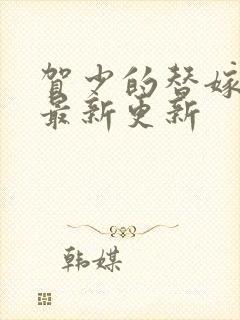 贺少的替嫁
最新更新
韩媒